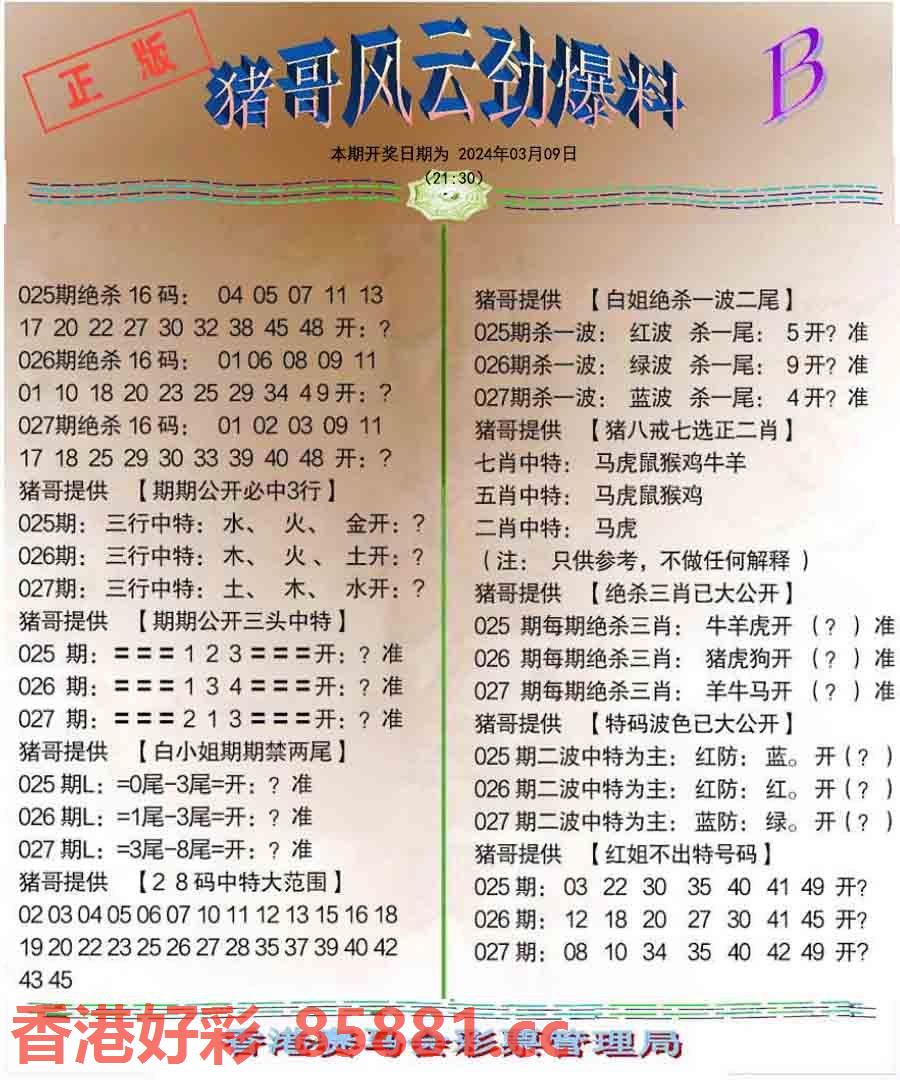 正版
猪哥风云劲爆料
B
本期开奖日期为 2024年03月09日
(21:30)
025期绝杀16码： 04 05 07 11 13
17 20 22 27 30 32 38 45 48 开：?
026期绝杀16码： 01 06 08 09 11
01 10 18 20 23 25 29 34 49开：?
027期绝杀16码： 01 02 03 09 11
17 18 25 29 30 33 39 40 48 开：?
猪哥提供 【期期公开必中3行】
025期：三行中特：水、 火、 金开：?
026期：三行中特：木、 火、 土开：?
027期：三行中特：土、 木、 水开：?
猪哥提供 【期期公开三头中特】
025 期：===1 2 3===开：? 准
026 期：===1 3 4===开：? 准
027 期：===2 1 3===开：? 准
猪哥提供 【白小姐期期禁两尾】
025期L：=0尾-3尾=开：? 准
026期L：=1尾-3尾=开：? 准
027期L：=3尾-8尾=开：? 准
猪哥提供 【28码中特大范围】
02 03 04 05 06 07 10 11 12 13 15 16 18
19 20 22 23 25 26 27 28 35 37 39 40 42
43 45
猪哥提供 【白姐绝杀一波二尾】
025期杀一波： 红波 杀一尾： 5开? 准
026期杀一波： 绿波 杀一尾： 9开? 准
027期杀一波： 蓝波 杀一尾： 4开? 准
猪哥提供 【猪八戒七选正二肖】
七肖中特： 马虎鼠猴鸡牛羊
五肖中特： 马虎鼠猴鸡
二肖中特： 马虎
（注： 只供参考，不做任何解释 ）
猪哥提供 【绝杀三肖已大公开】
025 期每期绝杀三肖： 牛羊虎开 （? ）准
026 期每期绝杀三肖： 猪虎狗开 （? ）准
027 期每期绝杀三肖： 羊牛马开 （? ）准
猪哥提供 【特码波色已大公开】
025期二波中特为主： 红防： 蓝。 开(? )
026期二波中特为主： 红防： 红。 开(? )
027期二波中特为主： 蓝防： 绿。 开(? )
猪哥提供 【红姐不出特号码】
025期： 03 22 30 35 40 41 49 开?
026期： 12 18 20 27 30 41 45 开?
027期： 08 10 34 35 40 42 49 开?
香港好彩 85881.cc
香港赛马会彩票管理局